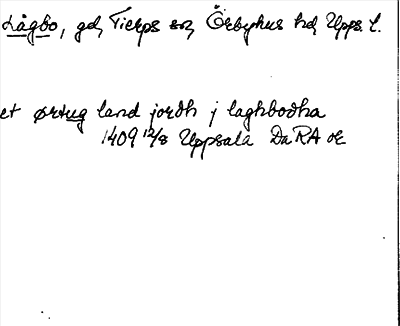 Lågbo, gd, Tierps sn, Örbyhus hd, Upps. l.
et ørtug land jordh j laghbodha
1409 12/8 Uppsala DaRA oc